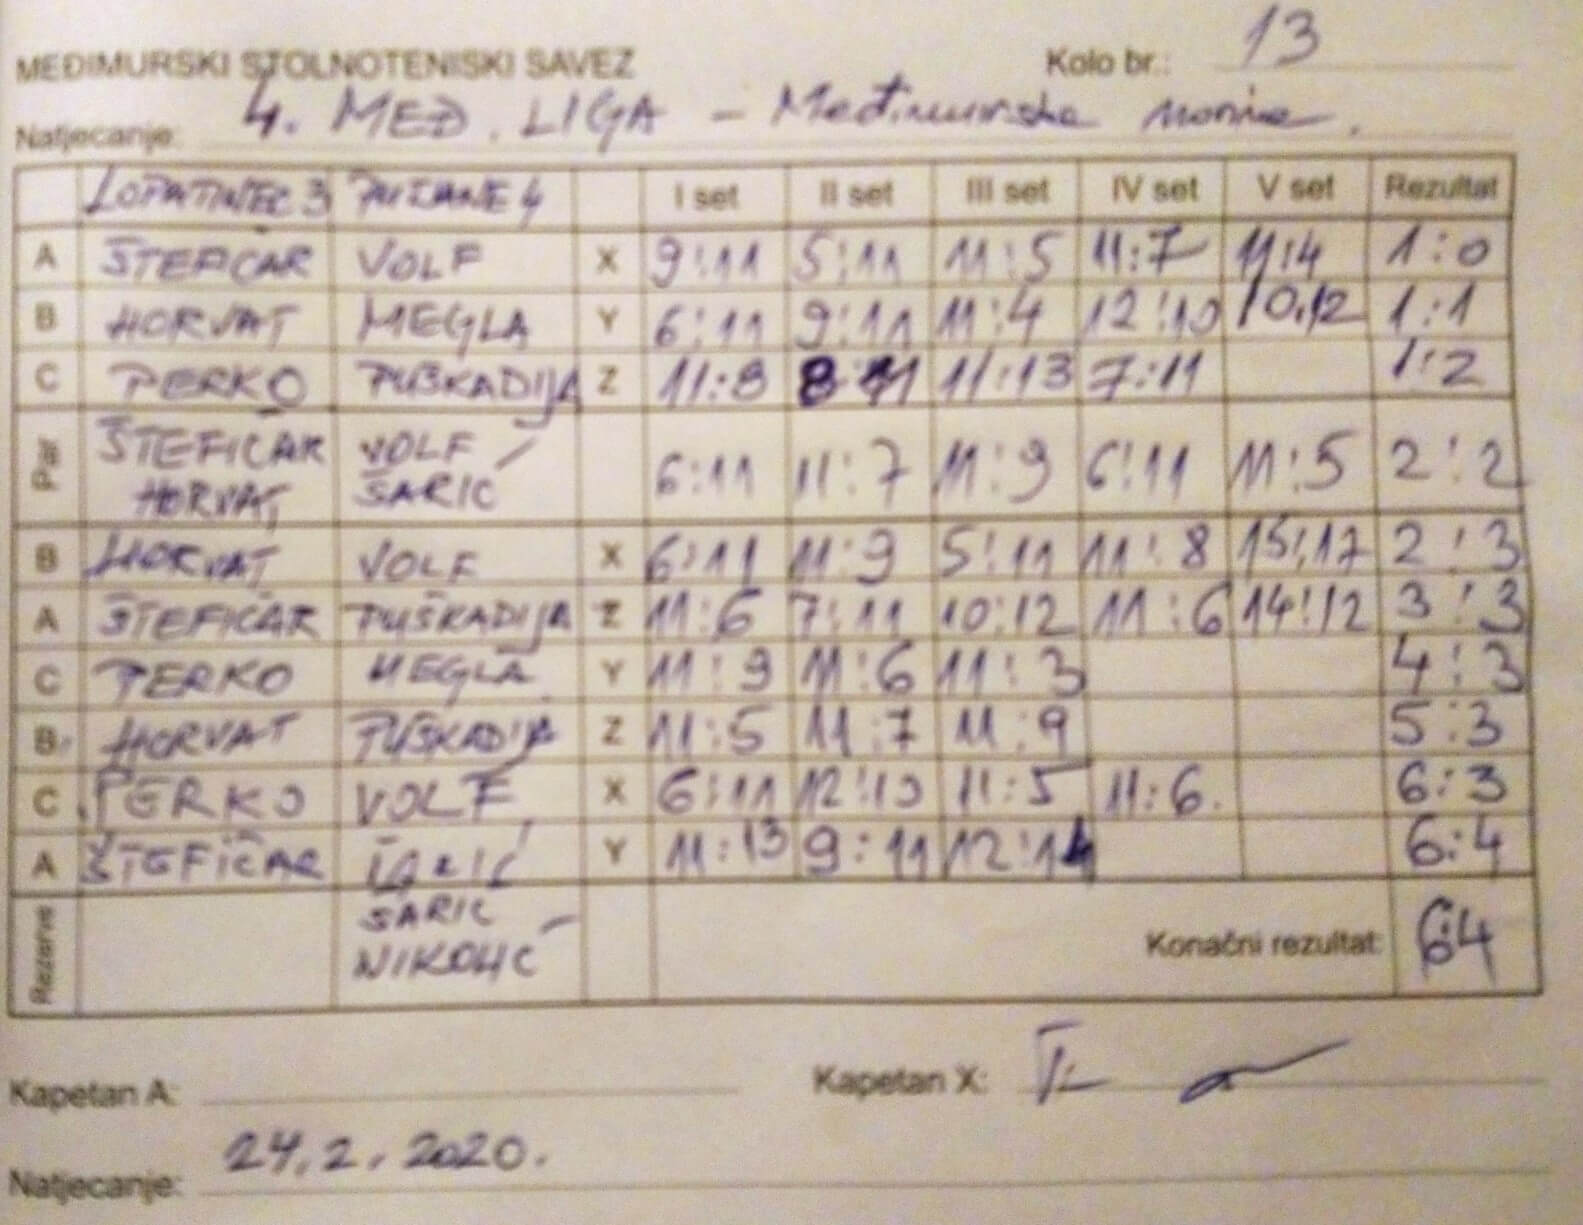 Kolo br.: 13
MEĐIMURSKI STOLNOTENISKI SAVEZ
Natjecanje: 4. MEĐ. LIGA - Međimurske novine.
LOPATINEC 3 PUŠĆANE 4 I set II set III set IV set V set Rezultat
A ŠTEFIČAR VOLF X 9:11 5:11 11:5 11:7 11:4 1:0
B HORVAT MEGLA Y 6:11 9:11 11:4 12:10 10:12 1:1
C PERKO PUŠKADIJA Z 11:8 8:11 11:13 7:11 1:2
Par ŠTEFIČAR HORVAT VOLF ŠARIĆ 6:11 11:7 11:9 6:11 11:5 2:2
B HORVAT VOLF X 6:11 11:9 5:11 11:8 15:17 2:3
A ŠTEFIČAR PUŠKADIJA Z 11:6 7:11 10:12 11:6 14:12 3:3
C PERKO MEGLA Y 11:9 11:6 11:3 4:3
B HORVAT PUŠKADIJA Z 11:5 11:7 11:9 5:3
C PERKO VOLF X 6:11 12:10 11:5 11:6 6:3
A ŠTEFIČAR ŠARIĆ Y 11:13 9:11 12:14 6:4
Rezerve ŠARIĆ NIKOLIĆ Konačni rezultat: 6:4
Kapetan A: Kapetan X:
24.2.2020.
Natjecanje: